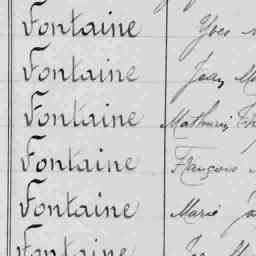 Fontaine Yves
Fontaine Jean M
Fontaine Mathurin
Fontaine François
Fontaine Marie
Fontaine